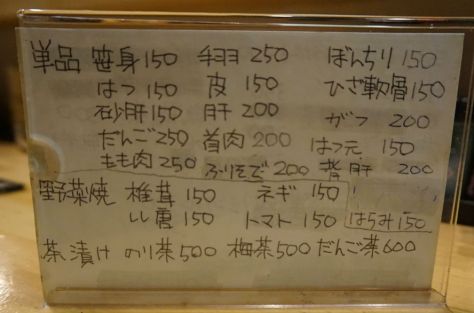 単品 笹身150 手羽250 ぼんちり150
はつ150 皮 150 ひざ軟骨150
砂肝150 肝 200 がつ 200
だんご250 首肉200 はつ元 150
もも肉250 ふりそで200 背肝 200
野菜焼 椎茸150 ネギ 150
しし唐150 トマト 150 はらみ150
茶漬け のり茶500 梅茶500 だんご茶600